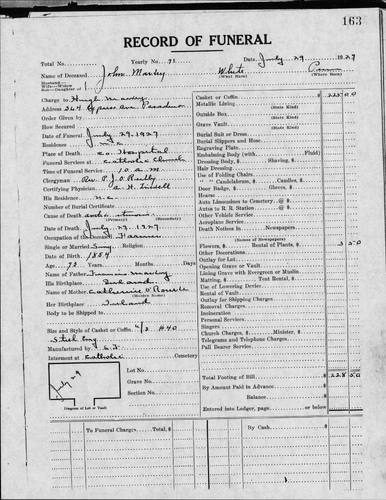 163
RECORD OF FUNERAL
Total No. Yearly No. 71 Date July 29 1927
Name of Deceased John White Penna
(What Race) (Where Born)
Husband
Wife
Son—Daughter of
Charge to Hugh
Address 364 Cypress Ave. Pasadena
Order Given by
How Secured
Date of Funeral July 29, 1927
Residence
Place of Death Co. Hospital
Funeral Services at Catholic Church
Time of Funeral Service 10 a.m
Clergyman Rev. P. J. O'Reilly
Certifying Physician
His Residence
Number of Burial Certificate
Cause of Death
(Primary) (Secondary)
Date of Death July 27, 1927
Occupation of the Deceased Farmer
Single or Married Sing. Religion
Date of Birth
Age 72 Years Months Days
Name of Father Francis
His Birthplace Ireland
Name of Mother Catherine O'Rourke
(Maiden Name)
Her Birthplace Ireland
Body to be Shipped to
Size and Style of Casket or Coffin 6/3 #40
Manufactured by
Interment at Catholic Cemetery
Lot No.
Grave No.
Section No.
July 29
Diagram of Lot or Vault
Casket or Coffin $ 225 00
Metallic Lining
(State Kind)
Outside Box
(State Kind)
Grave Vault
(State Kind)
Burial Suit or Dress
Burial Slippers and Hose
Engraving Plate
Embalming Body (with Fluid)
Dressing Body, $ Shaving, $
Hair Dressing
Use of Folding Chairs
" " Candelabrum, $ Candles, $
Door Badge, $ Gloves, $
Hearse
Auto Limousines to Cemetery @ $
Autos to R. R. Station @ $
Other Vehicle Service
Aeroplane Service
Death Notices in Newspapers
(Names of Newspapers)
Flowers, $ Rental of Plants, $ 3 50
Other Decorations
Outlay for Lot
Opening Grave or Vault
Lining Grave with Evergreen or Muslin
Matting, $ Tent Rental, $
Use of Lowering Device
Rental of Vault
Outlay for Shipping Charges
Removal Charges
Incineration
Personal Services
Singers
Church Charges, $ Minister, $
Telegrams and Telephone Charges
Pall Bearer Service
Total Footing of Bill $ 228 50
By Amount Paid in Advance
Balance
Entered into Ledger, page or below
To Funeral Charges $
By Cash $